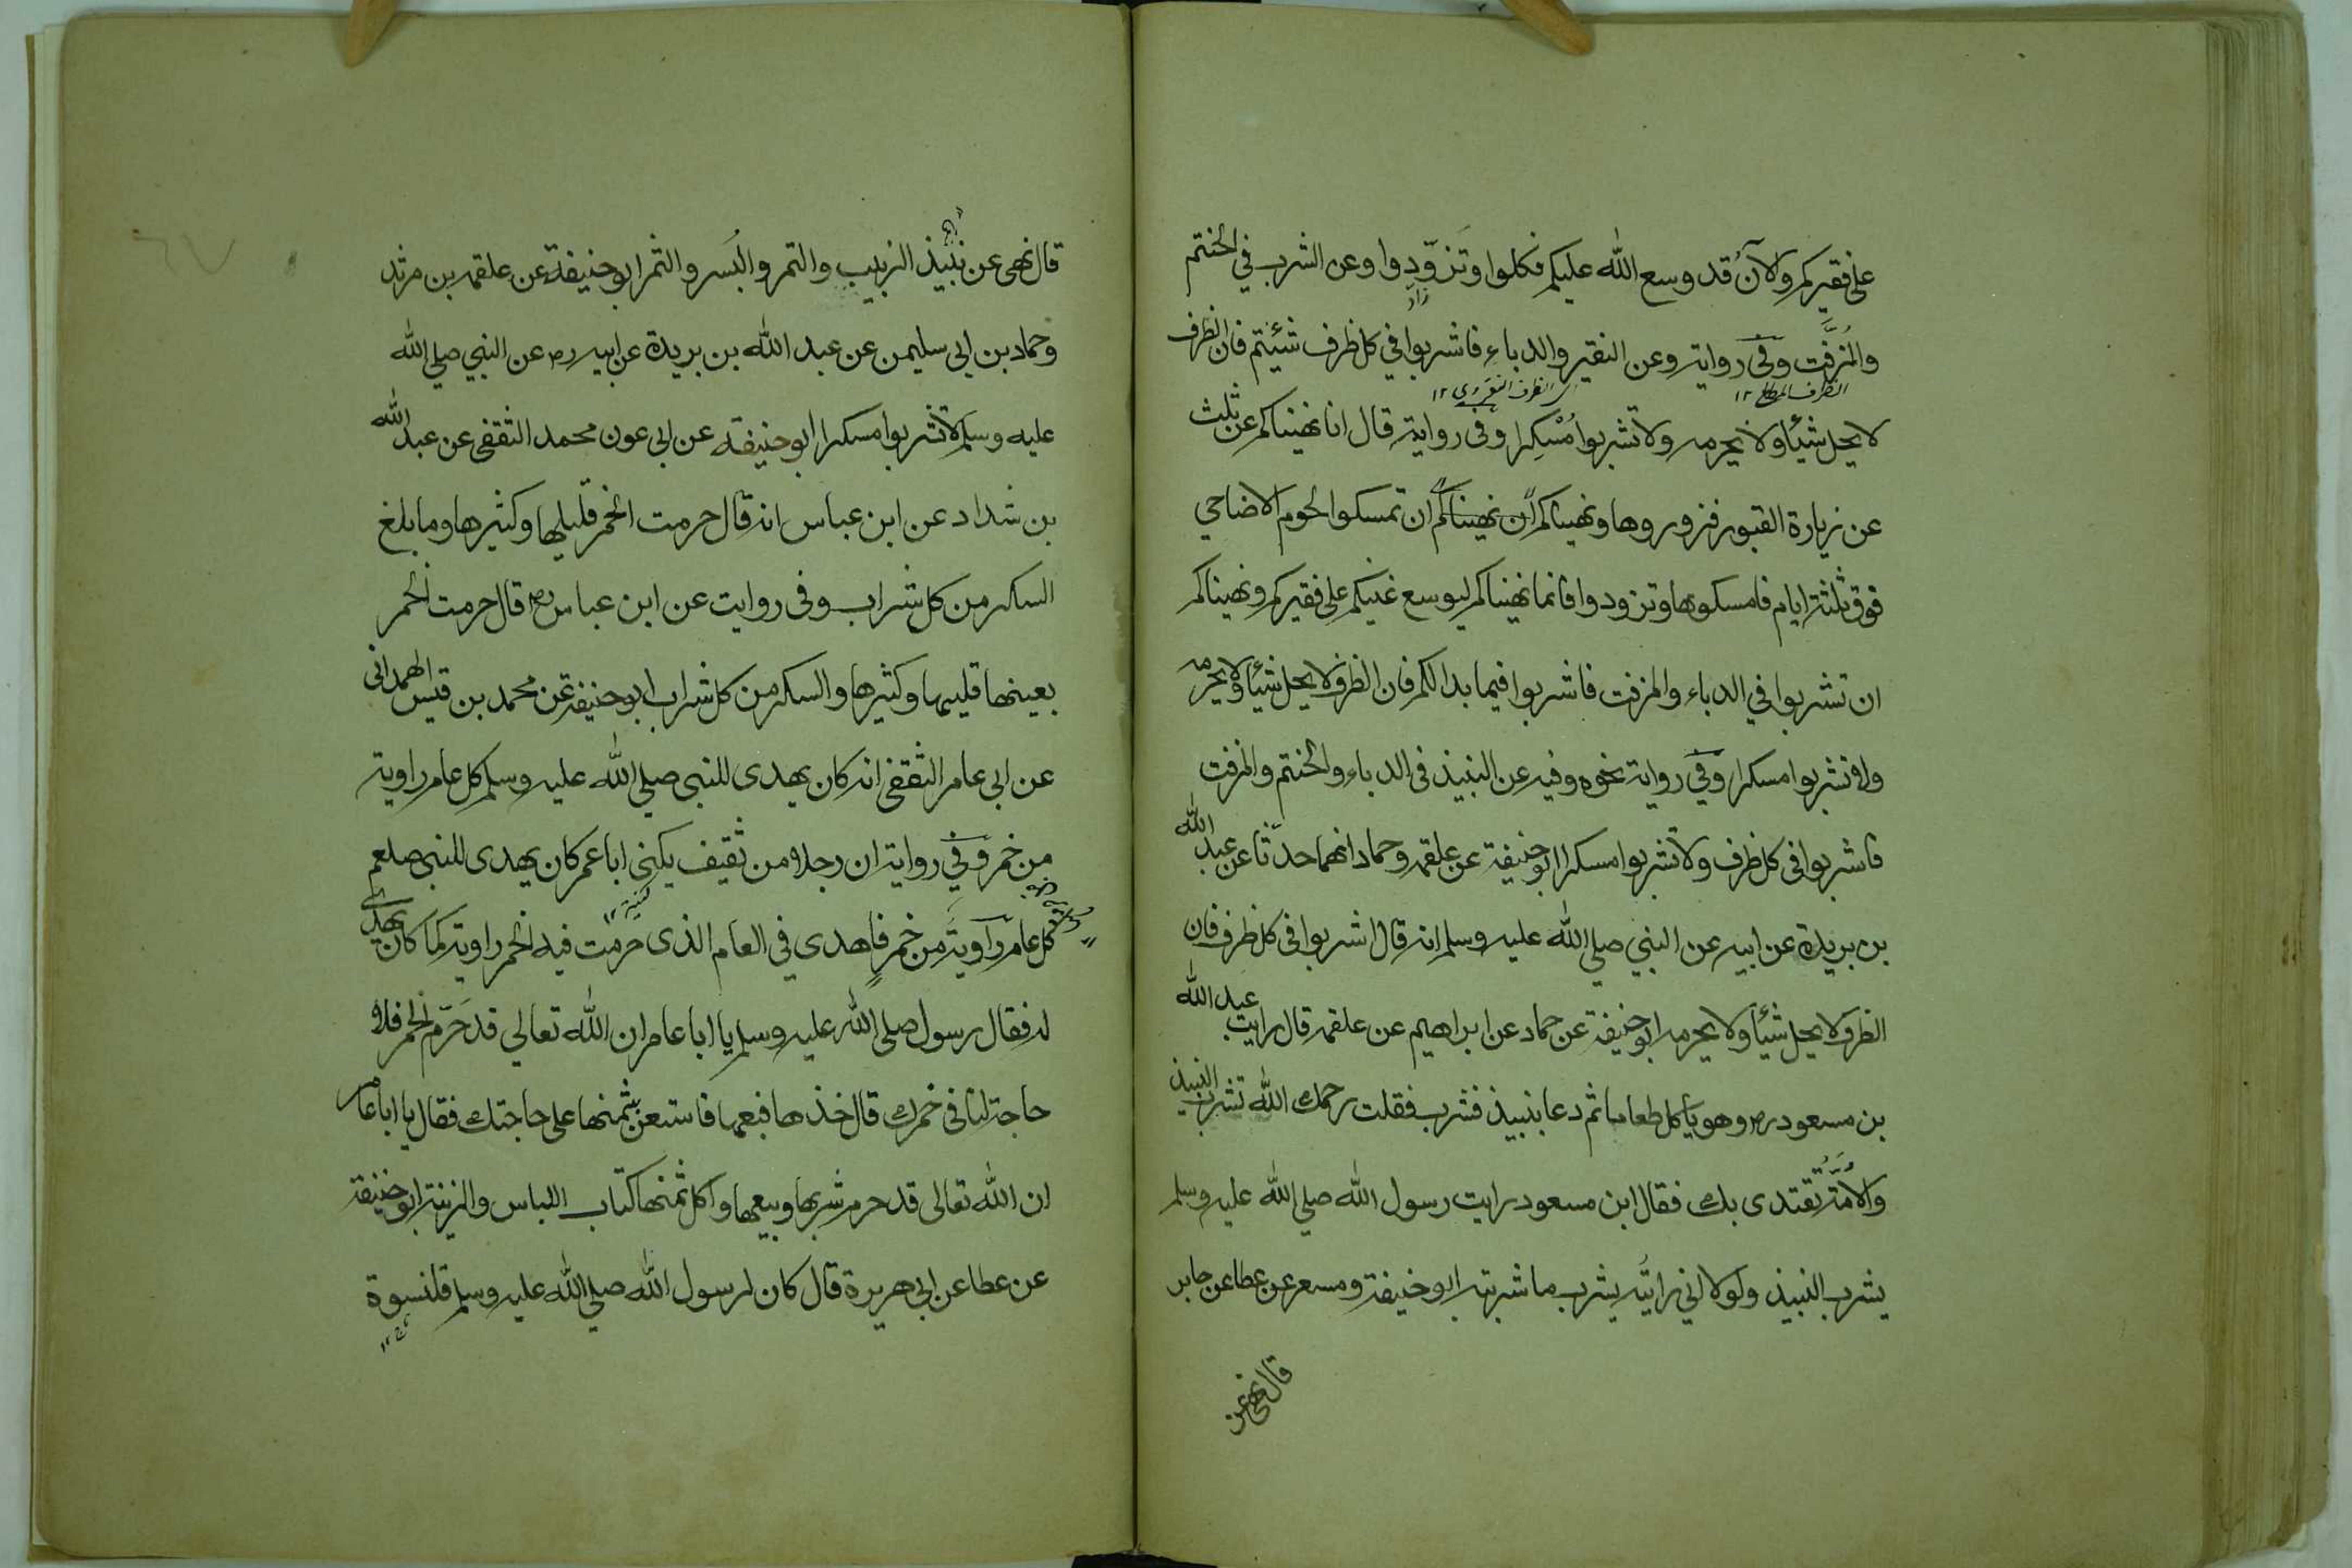 على فقيركم والآن قد وسع الله عليكم فكلوا وتَزوّدوا وعن الشرب في الحنتم
زاد
والمُزفَّت وفي رواية وعن النقير والدباء فاشربوا في كل ظرف شئتم فان الظرف
لا يحل شيئا ولا يحرمه ولا تشربوا مُسْكِرا وفى رواية قال انا نهيناكم عن ثلث
عن زيارة القبور فزوروها ونهيناكم ان نهيناكم ان تمسكوا لحوم الاضاحي
فوق ثلثة ايام فامسكوها وتزودوا فانما نهيناكم ليوسع غنيكم على فقيركم ونهيناكم
ان تشربوا في الدباء والمزفت فاشربوا فيما بدالكم فان الظرف لا يحل شيئا ولا يحرمه
ولا تشربوا مسكرا وفي رواية نحوه وفيه عن النبيذ فى الدباء والحنتم والمزفت
فاشربوا فى كل ظرف ولا تشربوا مسكرا ابو حنيفة عن علقمه وحماد انهما حدّثا عن عبد الله
بن بريدة عن ابيه عن النبي صلي الله عليه وسلم انه قال اشربوا فى كل ظرف فان
الظرف لا يحل شيئا ولا يحرمه ابو حنيفة عن حماد عن ابراهيم عن علقمه قال رايت عبد الله
بن مسعود رض وهو يأكل طعاما ثم دعا بنبيذ فشرب فقلت رحمك الله تشرب النبيذ
والأمّة تُقتدى بك فقال ابن مسعود رايت رسول الله صلي الله عليه وسلم
يشرب النبيذ ولولا اني رايته يشرب ما شربته ابو حنيفة ومسعر عن عطا عن جابر
قال نهى عن
قال نهى عن نبيذ الزبيب والتمر والبُسر والتمر ابو حنيفة عن علقمه بن مرثد
وحماد بن ابي سليمن عن عبد الله بن بريدة عن ابيه رض عن النبي صلي الله
عليه وسلم لا تشربوا مسكرا ابو حنيفه عن ابي عون محمد الثقفي عن عبد الله
بن شداد عن ابن عباس انه قال حرمت الخمر قليلها وكثيرها وما بلغ
السكر من كل شراب وفى روايت عن ابن عباس رض قال حرمت الخمر
بعينها قليلها وكثيرها والسكر من كل شراب ابو حنيفة عن محمد بن قيس الهمداني
عن ابي عامر الثقفي انه كان يهدى للنبي صلي الله عليه وسلم كل عام راوية
من خمر وفي رواية ان رجلا من ثقيف يكنى ابا عمر كان يهدى للنبي صلعم
كل عام راوية من خمرٍ فاهدي في العام الذى حرّمت فيه الخمر راوية كما كان يهدى
له فقال رسول صلى الله عليه وسلم يا ابا عامر ان الله تعالي قد حَرّم الخمر فلا
حاجة لنا فى خمرك قال خذها فبعها فاستعن بثمنها على حاجتك فقال يا ابا عامر
ان الله تعالى قد حرم شربها وبيعها واكل ثمنها كتاب اللباس والزينة ابو حنيفة
عن عطا عن ابي هريرة قال كان لرسول الله صلي الله عليه وسلم قلنسوة